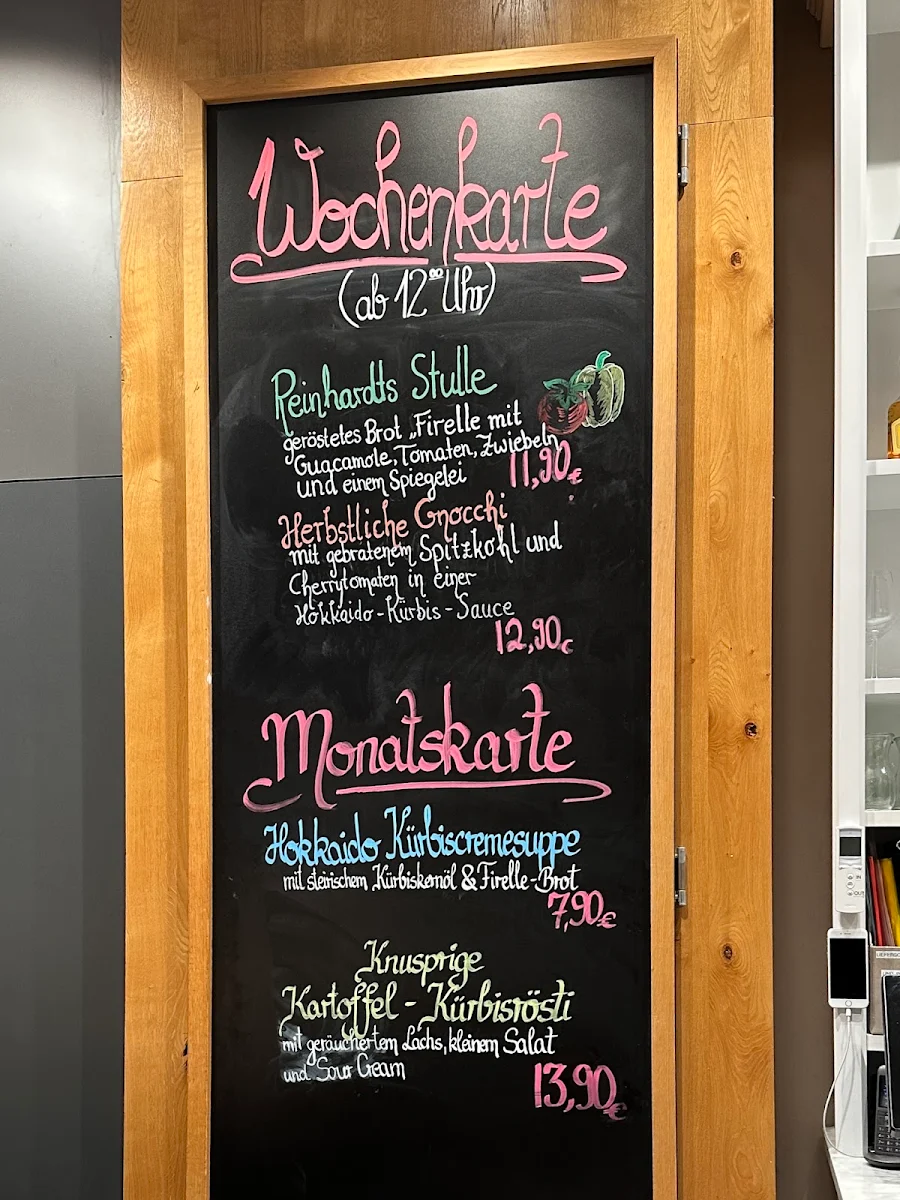 Wochenkarte
(ab 12⁰⁰ Uhr)
Reinhardts Stulle
geröstetes Brot „Firelle mit
Guacamole, Tomaten, Zwiebeln
und einem Spiegelei
11,90€
Herbstliche Gnocchi
mit gebratenem Spitzkohl und
Cherrytomaten in einer
Hokkaido-Kürbis-Sauce
12,90€
Monatskarte
Hokkaido Kürbiscremesuppe
mit steirischem Kürbiskernöl & Firelle-Brot
7,90€
Knusprige
Kartoffel-Kürbisrösti
mit geräuchertem Lachs, kleinem Salat
und Sour Cream
13,90€